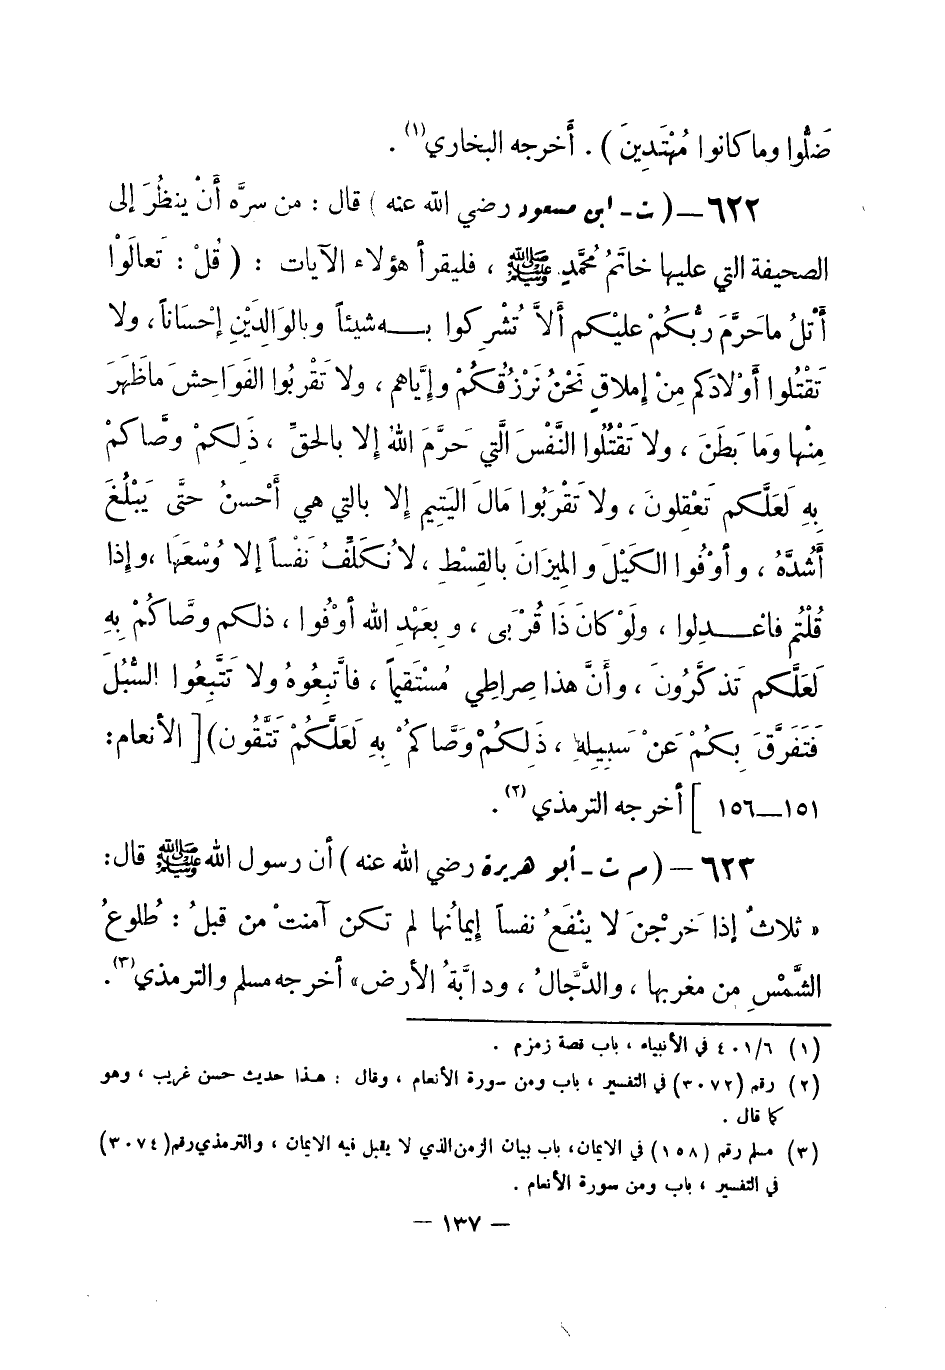 ضَلُّوا وما كانوا مُهْتَدِينَ ) . أَخرجه البخاري(١) .
٦٢٢ – ( ت - ابن مسعود رضي الله عنه ) قال : من سرَّه أَنْ ينظُرَ إلى
الصحيفة التي عليها خاتَمُ مُحمَّدٍ ﷺ ، فليقرأ هؤلاء الآيات : ( قُلْ : تَعالَوْا
أَتْلُ ماحَرَّمَ رَبُّكُمْ عليْكم أَلاَّ تُشْرِكوا بـــه شيئاً وبالوَالِدَيْنِ إحْسَاناً ، ولا
تَقْتُلُوا أَوْلادَكم مِنْ إملاقٍ نَحْنُ نَرْزُقُكُمْ وإيَّاهم ، ولا تَقْرَبُوا الفَوَاحِشَ ماظَهَرَ
مِنْها وَمَا بَطَنَ ، ولا تَقْتُلُوا النَّفْسَ الَّتِي حَرَّمَ اللهُ إلا بالحقِّ ، ذَلِكمْ وصَّاكمْ
بِهِ لَعَلَّكم تَعْقِلونَ ، ولا تَقْرَبُوا مَالَ اليَتِيمِ إلا بالتي هي أَحْسنُ حتَّى يَبْلُغَ
أَشُدَّهُ ، وأَوْفُوا الكَيْلَ والمِيْزَانَ بالقِسْطِ ، لا نُكَلِّفُ نَفْساً إلا وُسْعَهَا ، وإذا
قُلْتُم فاعْـــدِلوا ، ولَوْ كانَ ذَا قُرْبَى ، وبعَهْدِ الله أَوْفُوا ، ذلكم وصَّاكُمْ بِهِ
لَعَلَّكم تَذكَّرُونَ ، وأَنَّ هذا صِراطِي مُسْتَقيماً ، فاتَّبِعُوهُ ولا تَتَّبِعُوا السُّبُلَ
فَتَفَرَّقَ بِكُمْ عَنْ سَبِيلِهِ ، ذَلِكُمْ وَصَّاكُمْ بِهِ لَعَلَّكُمْ تَتَّقُون) [ الأنعام :
١٥١ – ١٥٦ ] أخرجه الترمذي (٢) .
٦٢٣ – ( م ت - أبو هريرة رضي الله عنه ) أن رسول الله ﷺ قال :
« ثلاثٌ إذا خَرجْنَ لا ينْفَعُ نفساً إيمانُها لم تكن آمنتْ من قبلُ : طُلوعُ
الشَّمْسِ مِن مغربها ، والدَّجَّالُ ، ودابَّةُ الأرض» أخرجه مسلم والترمذي(٣) .
(١) ٤٠١/٦ في الأنبياء ، باب قصة زمزم .
(٢) رقم (٣٠٧٢) في التفسير ، باب ومن سورة الأنعام ، وقال : هـذا حديث حسن غريب ، وهو
كما قال .
(٣) مسلم رقم (١٥٨) في الايمان ، باب بيان الزمن الذي لا يقبل فيه الايمان ، والترمذي رقم (٣٠٧٤)
في التفسير ، باب ومن سورة الأنعام .
– ١٣٧ –